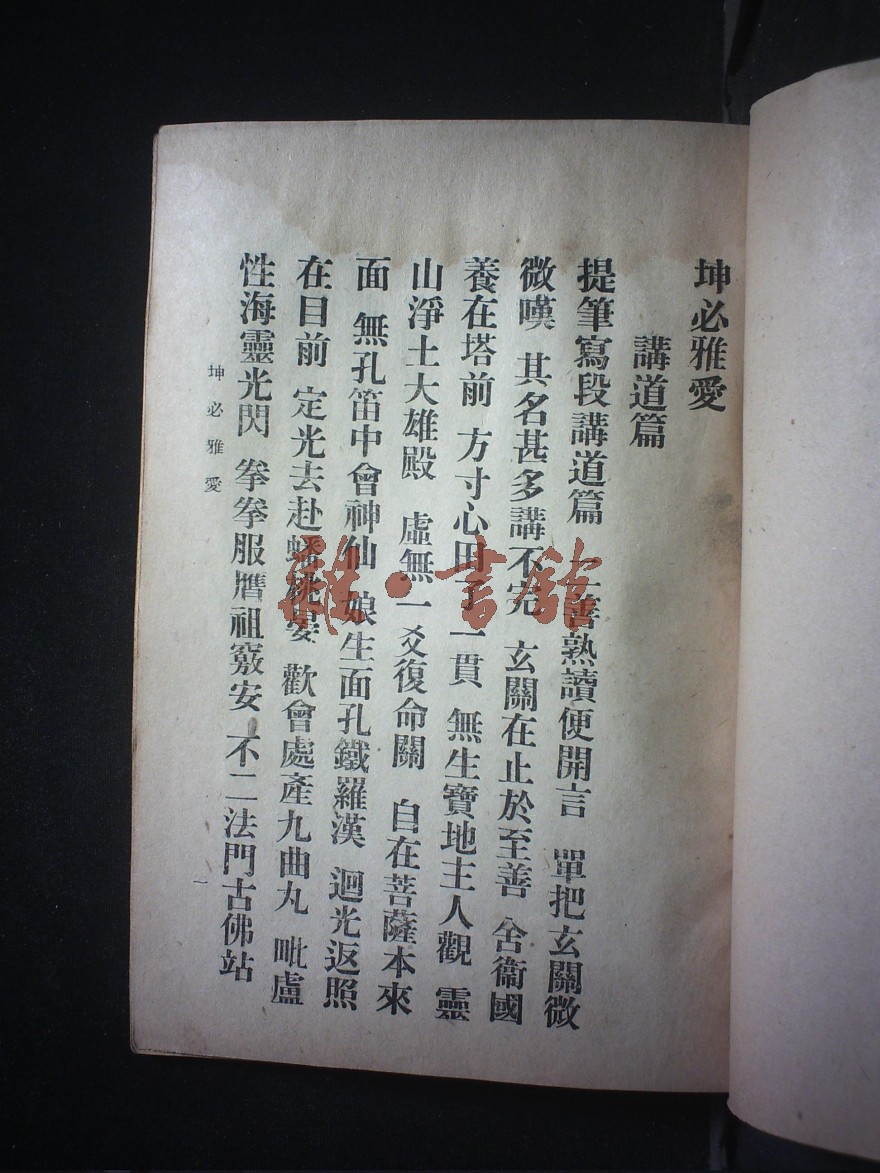 坤必雅愛
講道篇
提筆寫段講道篇 一善熟讀便開言 單把玄關微
微嘆 其名甚多講不完 玄關在止於至善 舍衞國
養在塔前 方寸心田了一貫 無生寶地主人觀 靈
山淨土大雄殿 虛無一爻復命關 自在菩薩本來
面 無孔笛中會神仙 娘生面孔鐵羅漢 迴光返照
在目前 定光去赴蟠桃宴 歡會處產九曲丸 毗盧
性海靈光閃 拳拳服膺祖竅安 不二法門古佛站
坤必雅愛
一
雜·書館